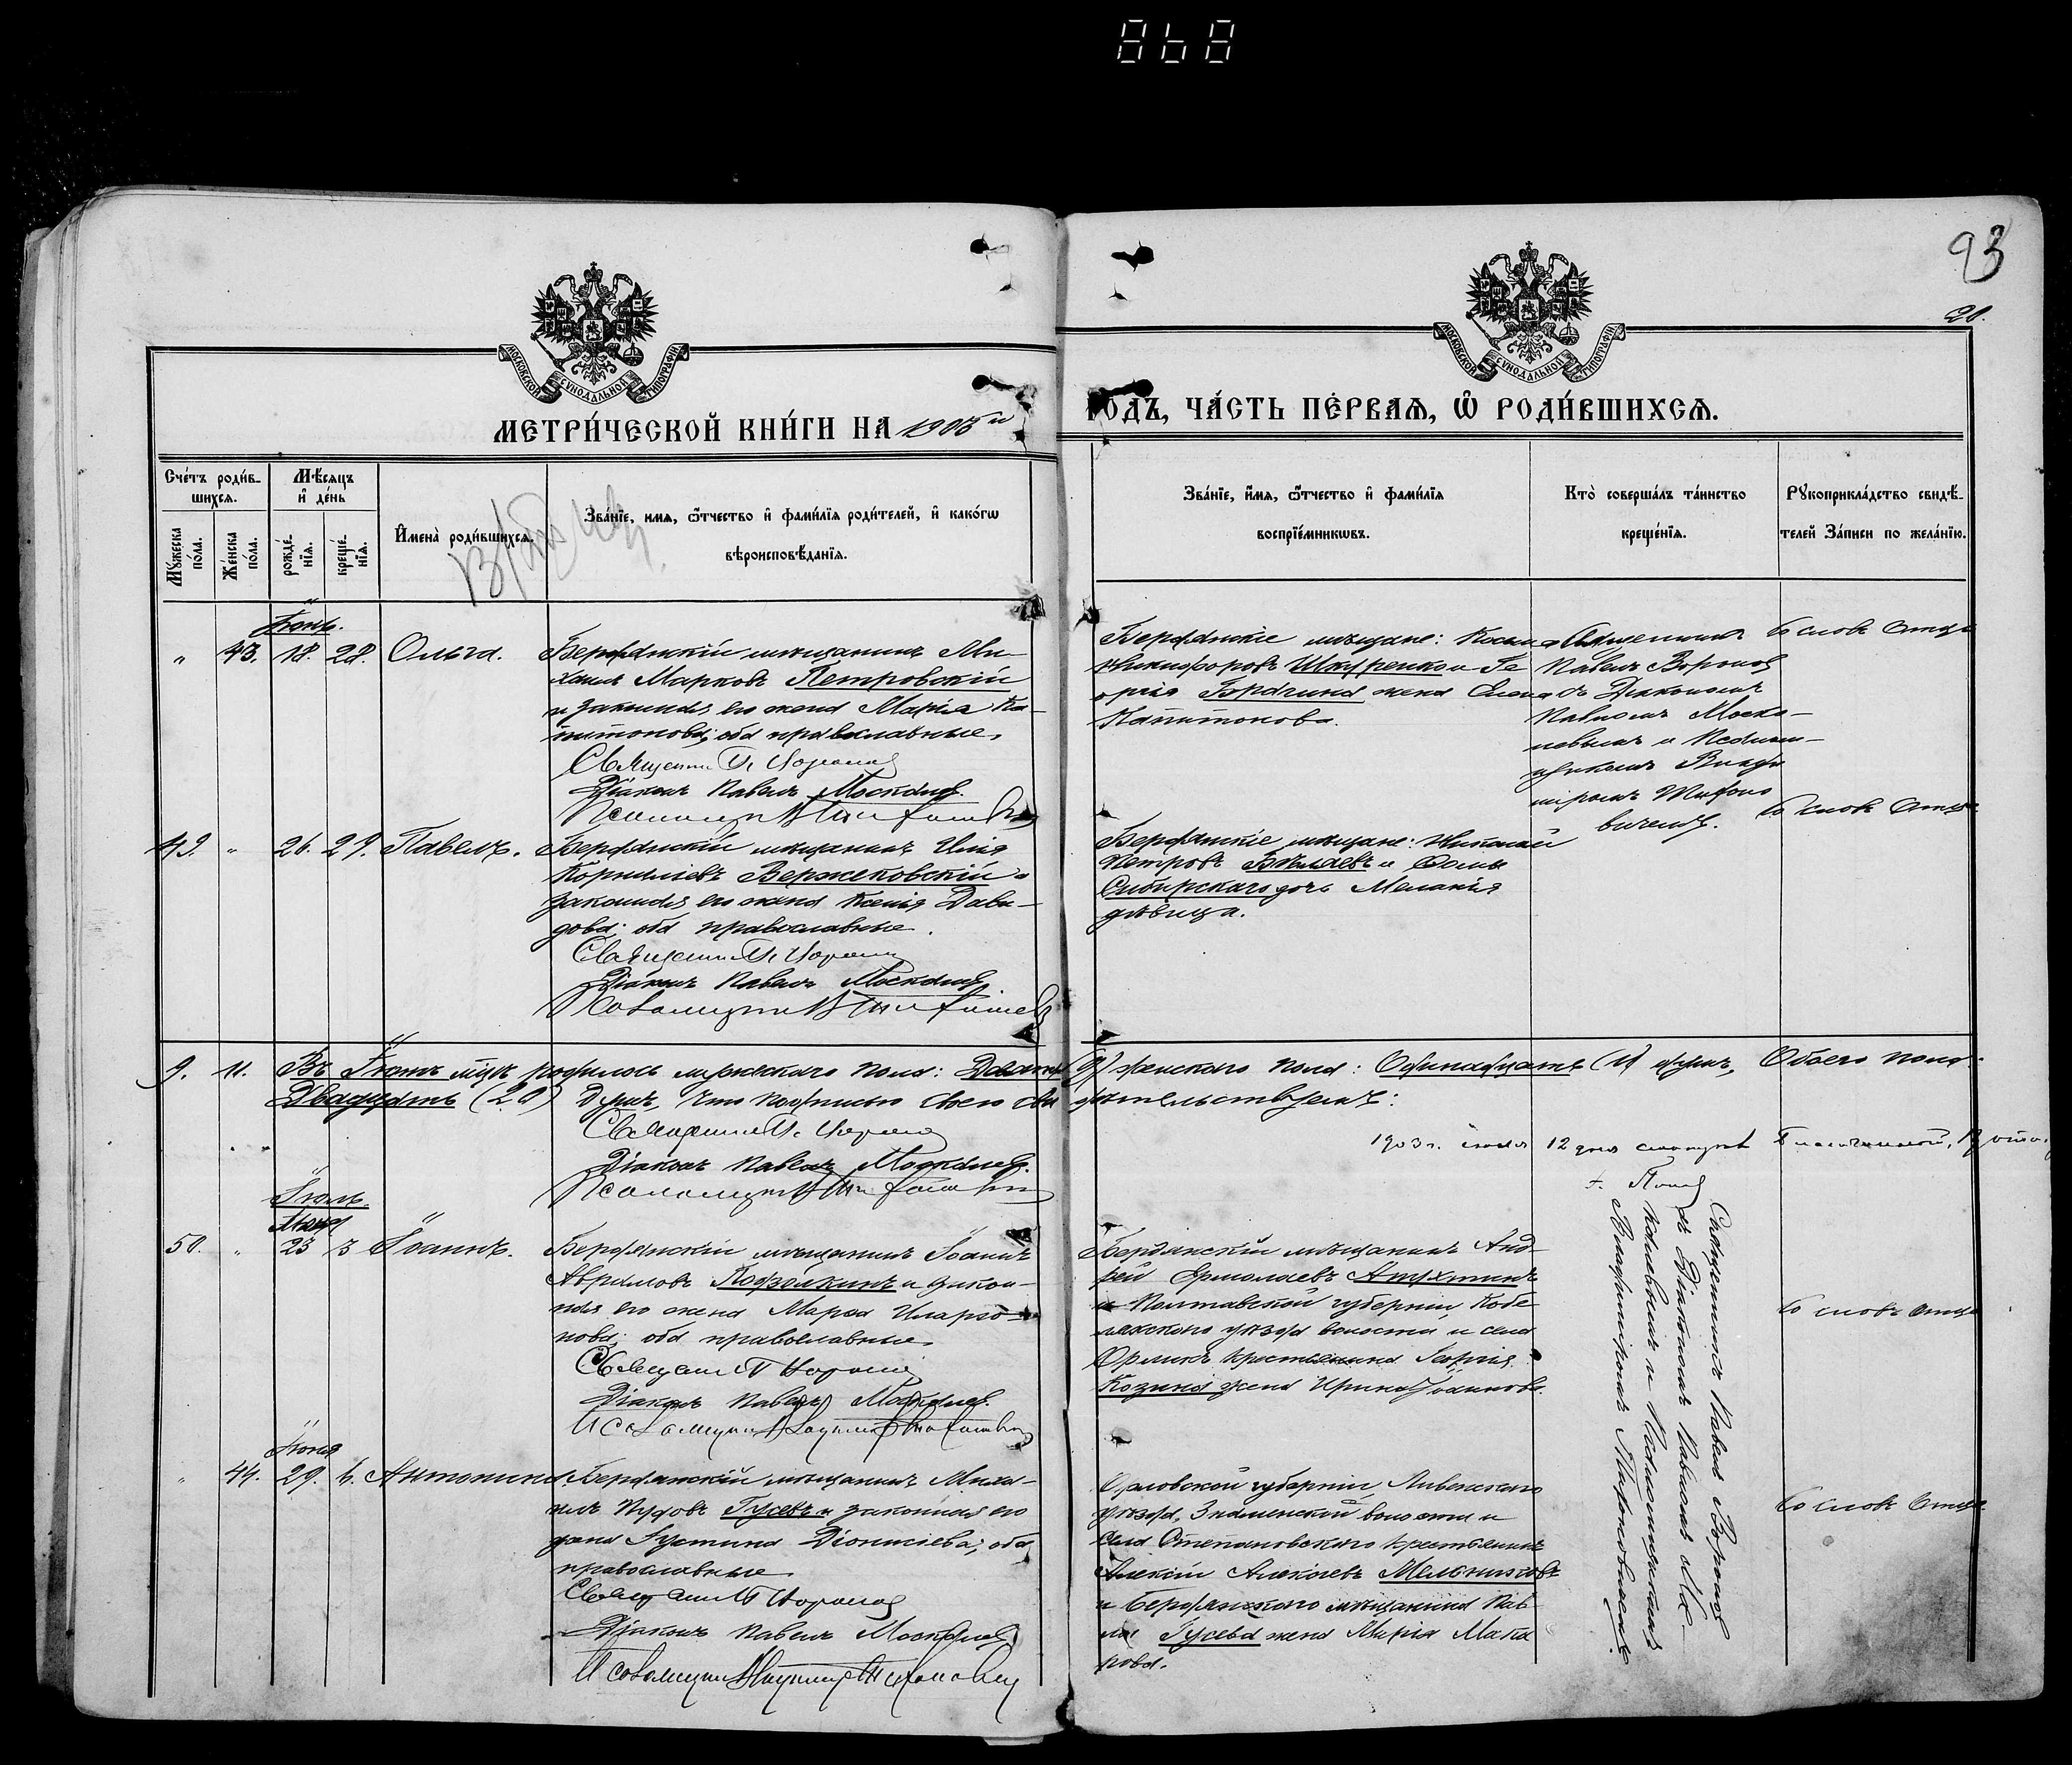 868
93
20.
МОСКОВСКОЙ СѴНОДАЛЬНОЙ ТИПОГРАФІИ
МОСКОВСКОЙ СѴНОДАЛЬНОЙ ТИПОГРАФІИ
МЕТРИ́ЧЕСКОЙ КНИ́ГИ НА 1903й ГОДЪ, ЧА́СТЬ ПЕ́РВАѦ, Ѡ҆ РОДИ́ВШИХСѦ.
Сче́тъ роди́в-
шихсѧ.
Мꙋ́жеска по́ла.
Же́нска по́ла.
Мѣ́сѧцъ
и҆ де́нь
рожде́нїѧ.
креще́нїѧ.
И҆мена̀ роди́вшихсѧ.
Зва́нїе, имѧ, ѻ҆́тчество и҆ фами́лїѧ роди́телей, и҆ како́гѡ
вѣроисповѣ́данїѧ.
Зва́нїе, и҆́мѧ, ѻ҆́тчество и҆ фами́лїѧ
воспрїе́мникѡвъ.
Кто̀ соверша́лъ та́инство
креще́нїѧ.
Рꙋкоприкла́дство свидѣ́-
телей За́писи по жела́нїю.
Іюнь.
" 43. 18. 28. Ольга.
Бердянскій мѣщанинъ Ми-
хаилъ Марковъ Петровскій
и законная его жена Марія Ка-
питонова; оба православные.
Священникъ П. Вороновъ
Діаконъ Павелъ Москалевъ.
Псаломщикъ В. Тифоновичъ
Бердянскіе мѣщане: Косьма
Никифоровъ Шкуренко и Ге-
оргія Брагина жена Елена
Капитонова.
Священникъ
Павелъ Вороновъ
съ Діакономъ
Павломъ Моска-
левымъ и Псалом-
щикомъ Влади-
міромъ Тифоно-
вичемъ.
Со словъ Отца
49. " 26. 29. Павелъ.
Бердянскій мѣщанинъ Илія
Корниліевъ Вержековскій и
законная его жена Ксенія Дави-
дова; оба православные.
Священникъ П. Вороновъ
Діаконъ Павелъ Москалевъ
Псаломщикъ В. Тифоновичъ
Бердянскіе мѣщане: Николай
Петровъ Бѣляевъ и Ѳомы
Сибирскаго дочь Меланія
дѣвица.
Со словъ Отца
9. 11. Въ Іюнѣ мцѣ родилось мужескаго пола: Девять (9) женскаго пола: Одинадцать (11) душъ, Обоего пола:
Двадцать (20) душъ, что подписью своею свидѣтельствуемъ:
Священникъ П. Вороновъ
Діаконъ Павелъ Москалевъ.
Псаломщикъ В. Тифоновичъ
1903 г. іюля 12 дня
Іюль.
Іюня
50. " 23 3 Іоаннъ.
Бердянскій мѣщанинъ Іоаннъ
Аврамовъ Подзолкинъ и закон-
ная его жена Марѳа Иларіо-
нова; оба православные.
Священникъ П. Вороновъ
Діаконъ Павелъ Москалевъ.
Псаломщикъ Владиміръ Тифоновичъ
Бердянскій мѣщанинъ Анд-
рей Ермолаевъ Алухтинъ
и Полтавской губерніи, Кобе-
лякскаго уѣзда волости и села
Орликъ крестьянина Георгія
Козина жена Ирина Іоаннова.
Священникъ Павелъ Вороновъ
съ Діакономъ Павломъ Мос-
калевымъ и Псаломщикомъ
Владиміромъ Тифоновичемъ.
Со словъ Отца
Іюня
" 44. 29. 6. Антонина.
Бердянскій мѣщанинъ Миха-
илъ Пудовъ Гусевъ и законная его
жена Іустина Діонисіева; оба
православные.
Священникъ П. Вороновъ
Діаконъ Павелъ Москалевъ.
Псаломщикъ Владиміръ Тифоновичъ
Орловской губерніи, Ливенскаго
уѣзда, Знаменской волости и
села Степановскаго крестьянинъ
Алексій Алексіевъ Мельниковъ
и Бердянскаго мѣщанина Пав-
ла Гусева жена Марія Мака-
рова.
Со словъ Отца